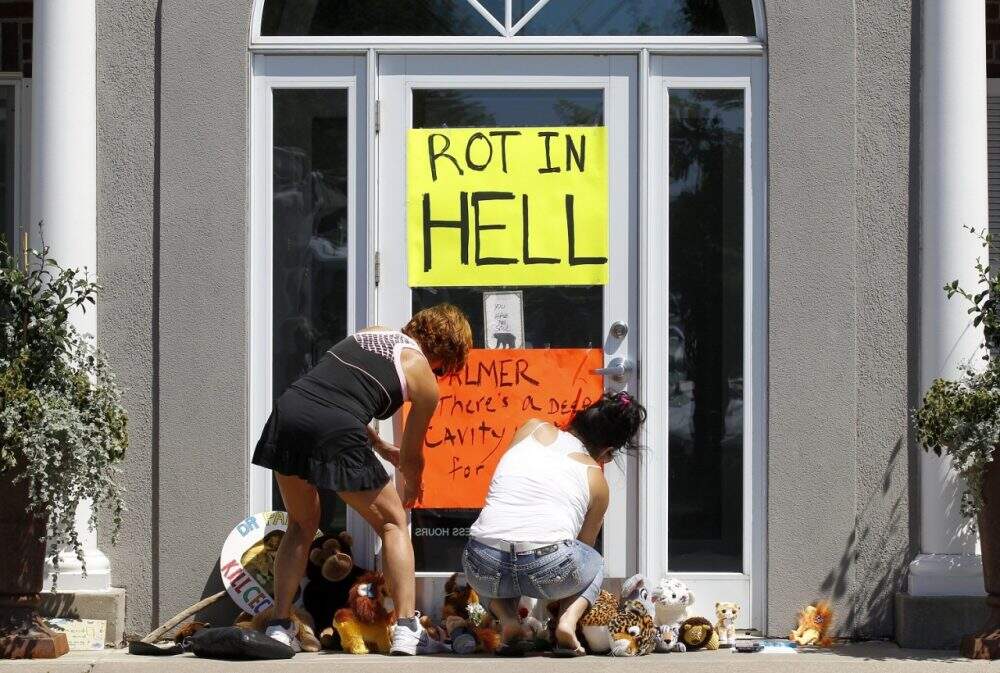 ROT IN
HELL
YOU
ARE
PALMER
There's a Deep
CAVITY
for
ESS HOURS
DR PA
KILL